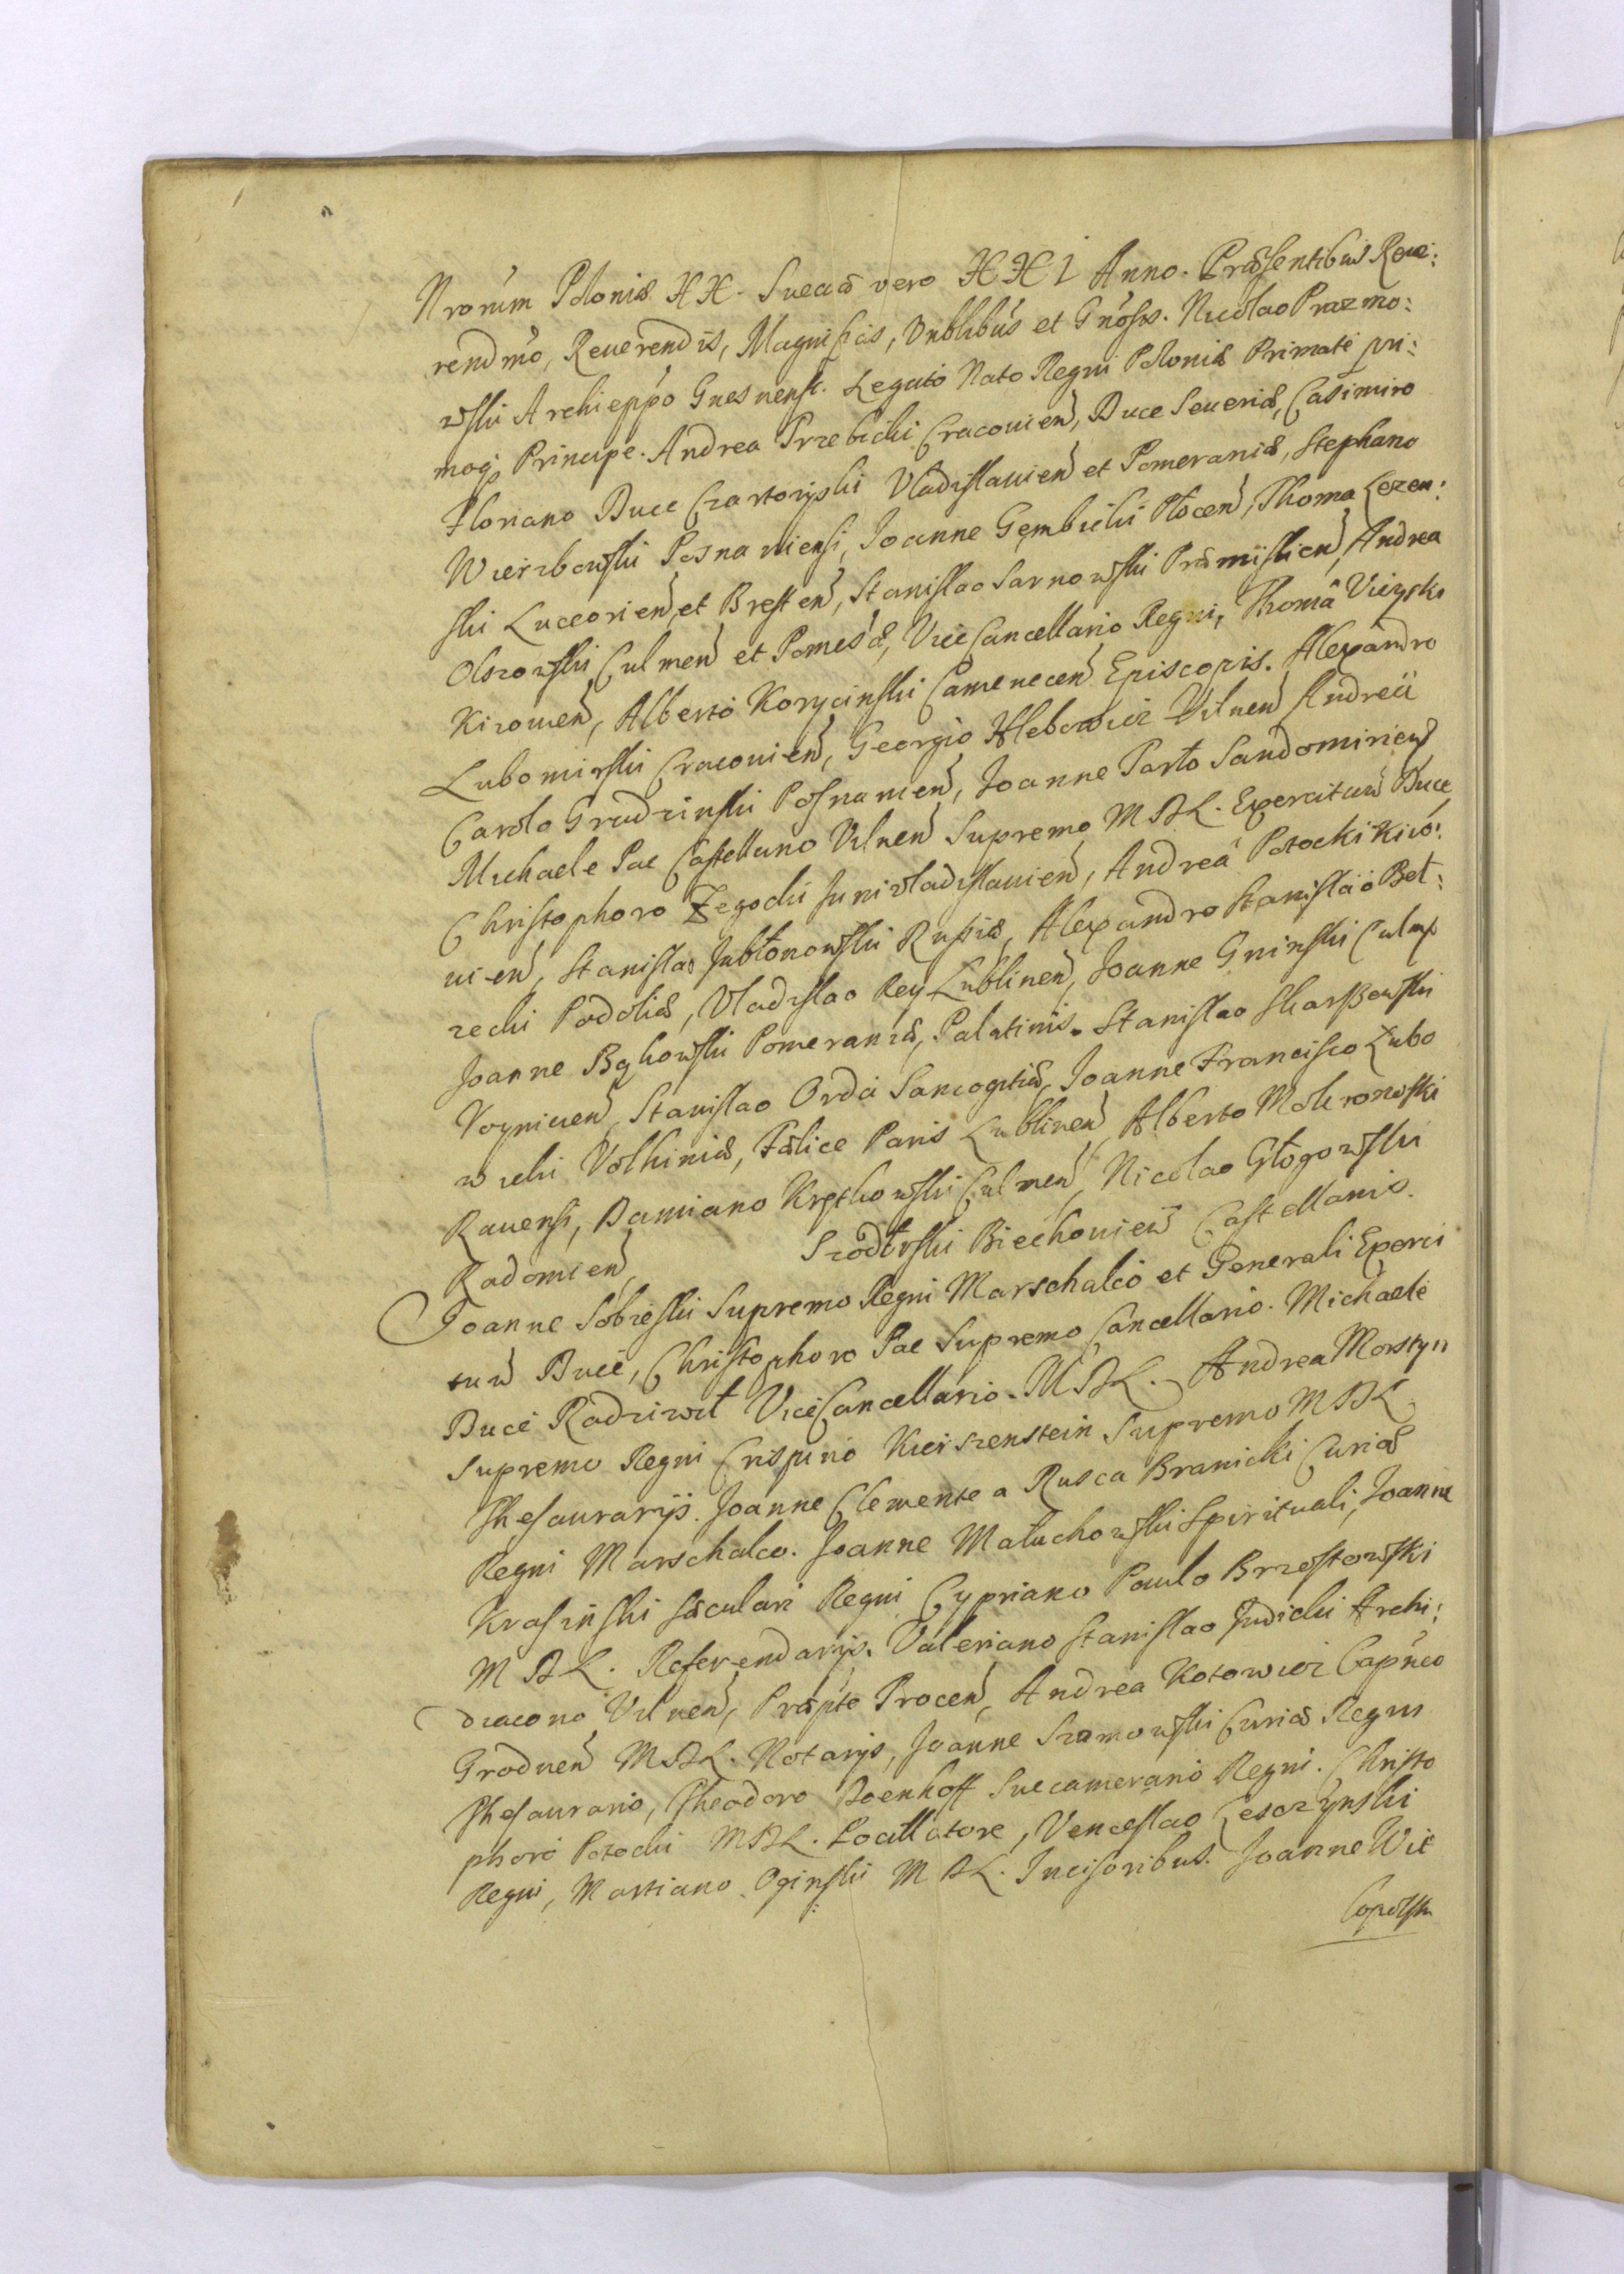 Nrorum Poloniæ XX. Sueciæ vero XXI Anno. Præsentibus Reue:
rendmo, Reuerendis, Magnificis, Vnblibus et Gnosis. Nicolao Prazmo:
wski Archieppo Gnesnensi. Legato Nato Regni Poloniæ Primate pri:
moq Principe. Andrea Trzebicki Cracouien, Duce Seueriæ, Casimiro
Floriano Duce Czartoryski Vladislauien et Pomeraniæ, Stephano
Wierzbowski Posnaniensi, Joanne Gembicki Płocen, Thoma Lezen:
ski Luceorien, et Bresten, Stanislao Sarnowski Præmislien, Andrea
Olszowski Culmen et Pomesæ, ViceCancellario Regni, Thomâ Vieysk
Kiiouien, Alberto Korycinski Camenecen Episcopis. Alexandro
Lubomirski Cracouien, Georgio Hlebowicz Vilnen Andreâ
Carolo Grudzinski Posnanien, Joanne Tarło Sandomirien
Michaele Pac Castellano Vilnen Supremo MDL. Exercituu Duce
Christophoro Żegocki Juniuladislauien, Andreâ Potocki Kiio:
uien, Stanislao Jabłonowski Russiæ, Alexandro Stanislao Beł:
zecki Podoliæ, Vladislao Rey Lublinen, Joanne Gninski Culmen
Joanne Bąkowski Pomeraniæ, Palatinis. Stanislao Skarszewski
Voynicen, Stanislao Orda Samogitiæ, Joanne Francisco Lubo
wicki Volhiniæ, Fælice Paris Lublinen, Alberto Mokronoski
Rauensi, Damiano Kretkowski Culmen, Nicolao Głogowski
Radomien, Szodłrski Biechouien Castellanis.
Joanne Sobieski Supremo Regni Marschalco et Generali Exerci
tuu Duce, Christophoro Pac Supremo Cancellario. Michaele
Duce Radziwił ViceCancellario. MDL. Andrea Morstyn
Supremo Regni Crispino Kierszenstein Supremo MDL
Thesaurarijs. Joanne Clemente a Rusca Branicki Curiæ
Regni Marschalco. Joanne Małachowski Spirituali, Joanne
Krasinski Sæculari Regni Cypriano Paulo Brzostowski
MDL. Referendarijs. Valeriano Stanislao Judicki Archi:
diacono Vilnen, Præpto Trocen, Andrea Kotowicz Capneo
Grodnen MDL. Notarijs, Joanne Szumowski Curiæ Regni
Thesaurario, Theodoro Doenhoff Succamerario Regni. Christo
phoro Potocki MDL. Pocillatore, Venceslao Lesczynski
Regni, Martiano Oginski MDL. Incisoribus. Joanne Wit